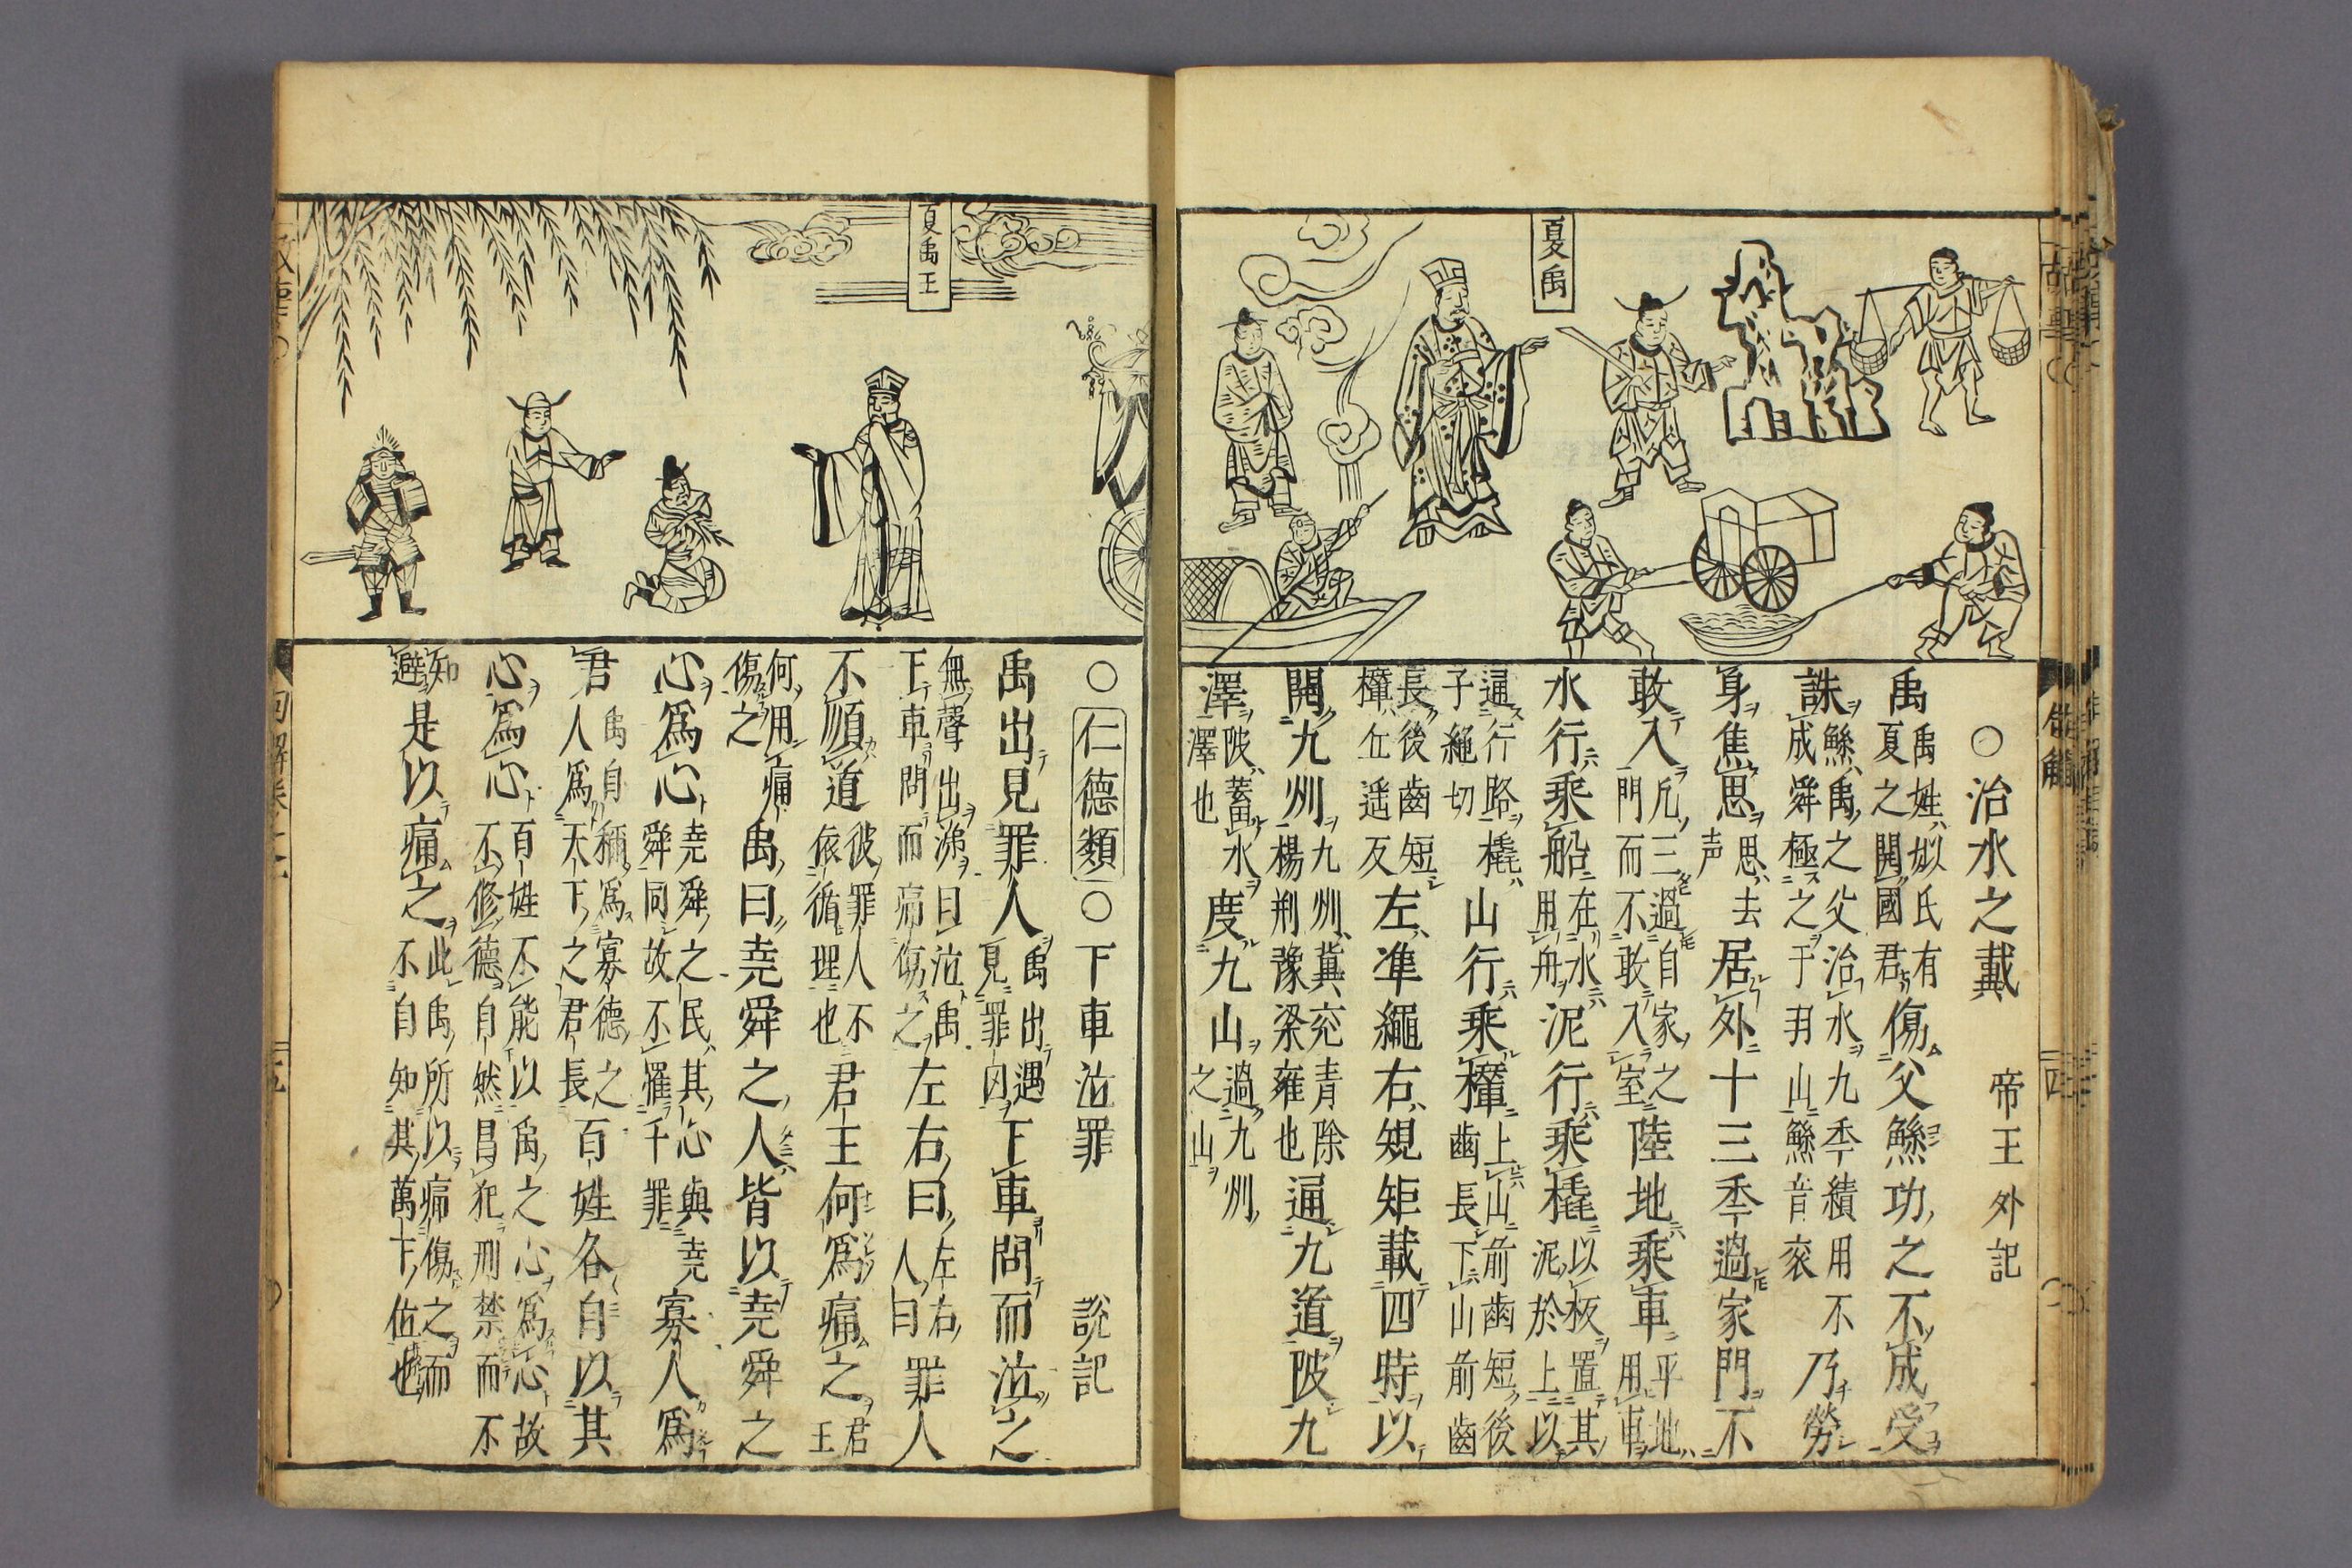 夏禹
○治水之戴 帝王外記
禹禹姓姒氏有夏之開國君傷父鯀功之不成受
誅鯀禹之父治水九秊績用不成舜極之于羽山鯀音衮乃勞
身焦思思去声居外十三秊過家門不
敢入凡三過自家之門而不敢入室陸地乘車平地用車
水行乘船在水用舟泥行乘橇以板置其泥於上以
通行路橇子絕切山行乘欙上山前齒短後齒長下山前齒
長後齒短欙丘遥反左準繩右規矩載四時以
開九州九州冀兖青除楊荆豫梁雍也通九道陂九
澤陂蓄水澤也度九山過九州之山
夏禹王
○仁德類○下車泣罪 說記
禹出見罪人禹出遇見罪囚下車問而泣之
無聲出涕曰泣禹下車問而痛傷之左右曰左右人曰罪人
不順道彼罪人不依循理也君王何爲痛之君王
何用痛傷之禹曰堯舜之人皆以堯舜之
心爲心堯舜之民其心與堯舜同故不罹千罪寡人爲
君禹自稱爲寡德之人爲天下之君長百姓各自以其
心爲心百姓不能以禹之心爲心故不修德自然昌犯刑禁而不
知避是以痛之此禹所以痛傷之而不自知其萬下位也